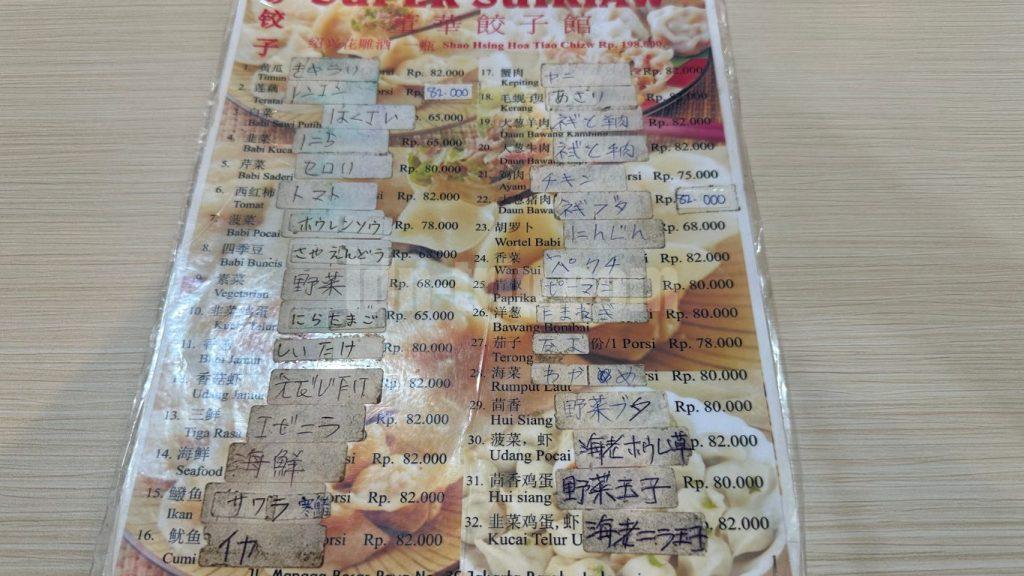 饺子
SUPER SUIKIAW
華餃子館
绍兴花雕酒 一瓶 Shao Hsing Hoa Tiao Chizw Rp. 198.000
1. 黄瓜 Timun きゅうり Rp. 82.000
2. 莲藕 Teratai レンコン Porsi Rp. 82.000
白菜 Sawi Putih はくさい Rp. 65.000
4. 韭菜 Babi Kucai ニラ Rp. 65.000
5. 芹菜 Babi Saderi セロリ Rp. 80.000
6. 西红柿 Tomat トマト Rp. 82.000
7. 菠菜 Babi Pocai ホウレンソウ Rp. 78.000
8. 四季豆 Babi Buncis さやえんどう Rp. 68.000
9. 素菜 Vegetarian 野菜 Rp. 68.000
10. 韭菜 Telur にらたまご Rp. 65.000
11. Babi Jamur しいたけ Rp. 80.000
12. 香菇虾 Udang Jamur Rp. 82.000
13. 三鲜 Tiga Rasa エビニラ Rp. 82.000
14. 海鲜 Seafood 海鮮 Rp. 82.000
15. Ikan サワラ Rp. 82.000
16. 鱿鱼 Cumi イカ Rp. 82.000
17. 蟹肉 Kepiting カニ Rp. 82.000
18. Kerang あさり
19. 大葱羊肉 Daun Bawang Kambing ネギと羊肉 Rp. 82.000
20. 大葱牛肉 Daun Bawang ネギと牛肉 Rp. 82.000
21. 鸡肉 Ayam チキン Porsi Rp. 75.000
22. 大葱猪肉 Daun Bawang ネギブタ Rp. 82.000
23. 胡罗卜 Wortel Babi にんじん Rp. 68.000
24. 香菜 Wan Sui パクチ Rp. 82.000
25. 青椒 Paprika ピーマン Rp. 80.000
26. 洋葱 Bawang Bombai たまねぎ Rp. 80.000
27. 茄子 Terong なす 份/1 Porsi Rp. 78.000
28. 海菜 Rumput Laut わかめ Rp. 80.000
29. 茴香 Hui Siang 野菜ブタ Rp. 80.000
30. 菠菜, 虾 Udang Pocai 海老ホウレン草 Rp. 82.000
31. 茴香鸡蛋 Hui siang 野菜玉子 Rp. 80.000
32. 韭菜鸡蛋, 虾 Kucai Telur U 海老ニラ玉子 82.000